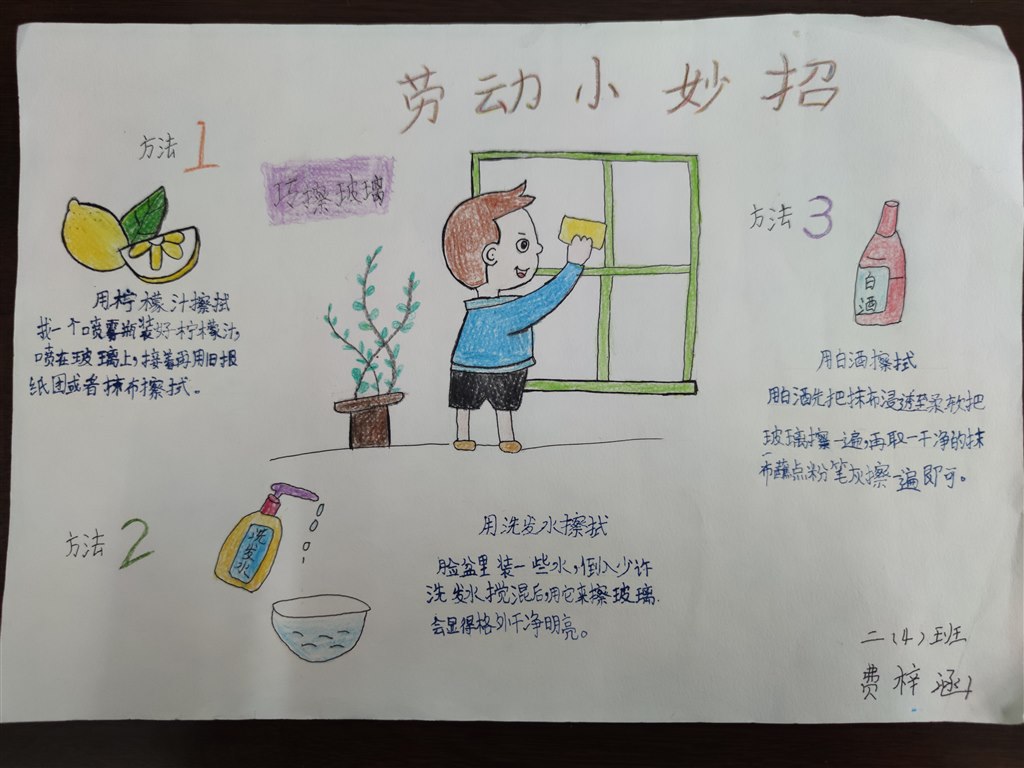 劳动小妙招
方法1
巧擦玻璃
用柠檬汁擦拭
找一个喷雾瓶装好柠檬汁,
喷在玻璃上,接着再用旧报
纸团或者抹布擦拭。
方法3
白
酒
用白酒擦拭
用白酒先把抹布浸透至柔软把
玻璃擦一遍,再取一干净的抹
布蘸点粉笔灰擦一遍即可。
方法2
洗
发
水
用洗发水擦拭
脸盆里装一些水,倒入少许
洗发水搅混后,用它来擦玻璃.
会显得格外干净明亮。
二(4)班
费梓涵